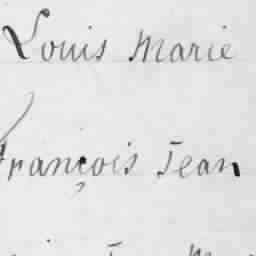 Louis Marie
François Jean